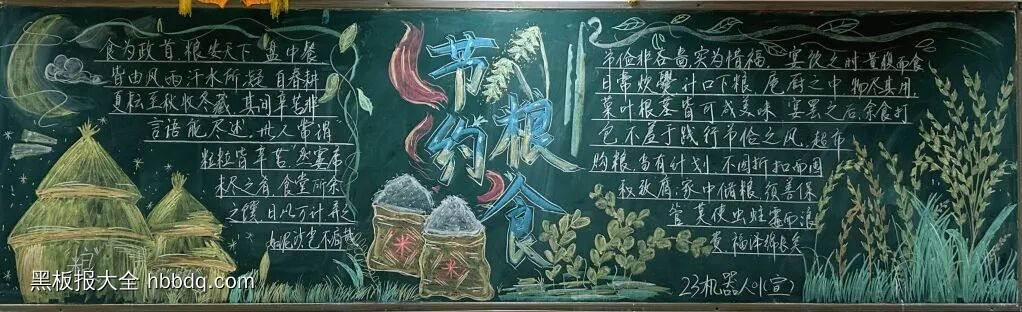 食为政首 粮安天下 盘中餐
皆由风雨汗水所凝 自春耕
夏耘至秋收冬藏 其间辛苦非
言语能尽述 世人常谓
粒粒皆辛苦 然宴席
未尽之肴 食堂所余
之馔 日以可计弃之
如泥沙
节约粮食
米
米
节俭非吝啬 实为惜福 宴饮之时 量腹而食
日常炊爨 计口下粮 庖厨之中 物尽其用
菜叶根茎皆可成美味 宴罢之后 余食打
包 不羞于践行节俭之风 超市
购粮 当有计划 不因折扣而囤
积 家中储粮 须善保
管 莫使虫蛀霉而浪
费 福泽绵长矣
23机器人01(宣)
黑板报大全 hbbdq.com